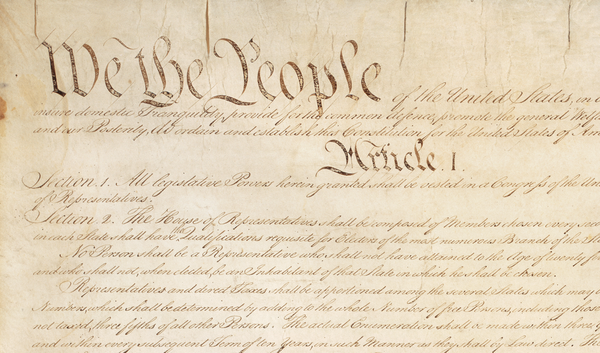 We the People of the United States, in O
insure domestic Tranquility, provide for the common defence, promote the general Welf
and our Posterity, do ordain and establish this Constitution for the United States of Am
Article. I.
Section. 1. All legislative Powers herein granted shall be vested in a Congress of the Un
of Representatives.
Section. 2. The House of Representatives shall be composed of Members chosen every seco
in each State shall have the Qualifications requisite for Electors of the most numerous Branch of the St
No Person shall be a Representative who shall not have attained to the Age of twenty fi
and who shall not, when elected, be an Inhabitant of that State in which he shall be chosen.
Representatives and direct Taxes shall be apportioned among the several States which may
Numbers, which shall be determined by adding to the whole Number of free Persons, including those
not taxed, three fifths of all other Persons. The actual Enumeration shall be made within three y
and within every subsequent Term of ten Years, in such Manner as they shall by Law direct. The